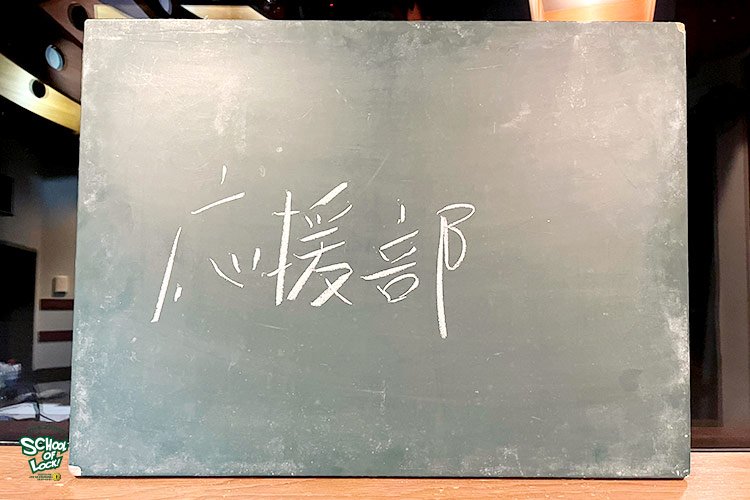 応援部
SCHOOL
OF
LOCK!